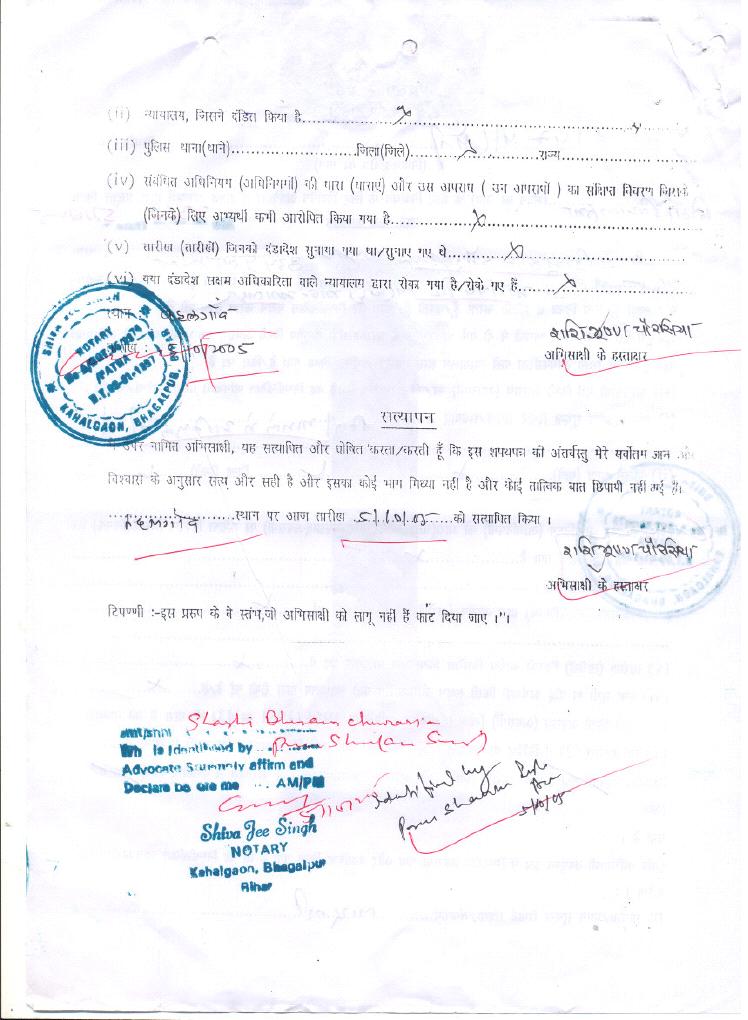 (ii) न्यायालय, जिसने दंडित किया है...............x...............
(iii) पुलिस थाना(थाने)...............जिला(जिले)........x........राज्य...............
(iv) संबंधित अधिनियम (अधिनियमों) की धारा (धाराएं) और उस अपराध ( उन अपराधों ) का संक्षिप्त विवरण जिसके
(जिनके) लिए अभ्यर्थी कभी आरोपित किया गया है...............x...............
(v) तारीख (तारीखें) जिनको दंडादेश सुनाया गया था/सुनाए गए थे...............x...............
(vi) क्या दंडादेश सक्षम अधिकारिता वाले न्यायालय द्वारा रोका गया है/रोके गए हैं...............x...............
स्थान कहलगाँव
शशि भूषण चौरसिया
अभिसाक्षी के हस्ताक्षर
SHIVA JEE SINGH
NOTARY
PATNA
KAHALGAON, BHAGALPUR,
सत्यापन
उपर नामित अभिसाक्षी, यह सत्यापित और घोषित करता/करती हूँ कि इस शपथपत्र की अंतर्वस्तु मेरे सर्वोतम ज्ञान और
विश्वास के अनुसार सत्य और सही है और इसका कोई भाग मिथ्या नहीं है और कोई तात्विक बात छिपायी नहीं गई है।
कहलगाँव स्थान पर आज तारीख 5/10/05 को सत्यापित किया ।
शशि भूषण चौरसिया
अभिसाक्षी के हस्ताक्षर
टिपण्णी :-इस प्ररुप के वे स्तंभ,जो अभिसाक्षी को लागू नहीं हैं काट दिया जाए ।"।
Smt/Shri Shashi Bhusan Chaurasia
Who Is Identified by
Advocate Solemnly affirm and
Declare before me ... AM/PM
Identified by
5/10/05
Shiva Jee Singh
NOTARY
Kahalgaon, Bhagalpur
Bihar